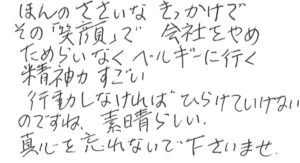 ほんのささいな きっかけで
その「笑顔」で 会社をやめ
ためらいなくベルギーに行く
精神力 すごい
行動しなければひらけていけない
のですね。素晴らしい。
真心を忘れないで下さいませ.